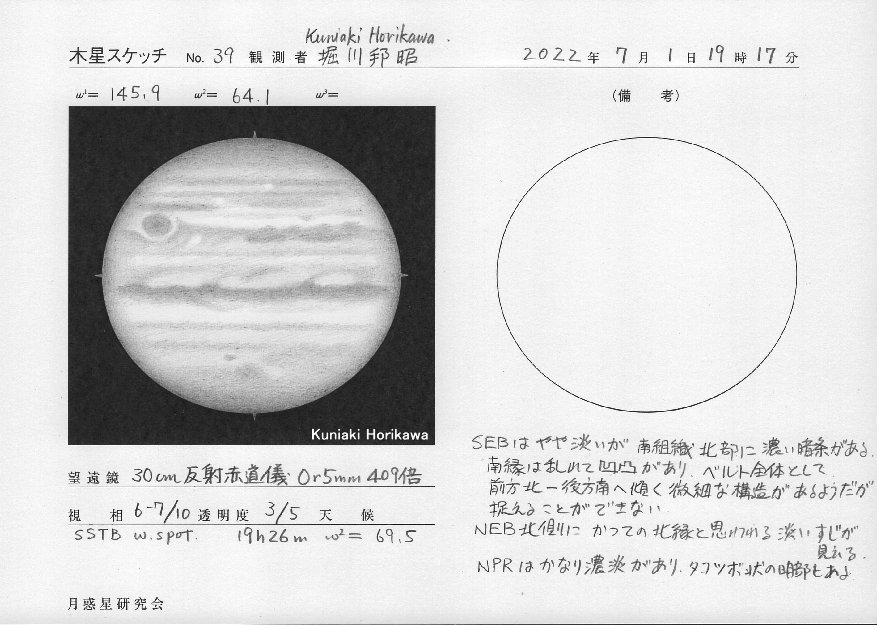 Kuniaki Horikawa.
木星スケッチ No. 39 観測者 堀川邦昭 2022年 7月 1日 19時 17分
ω¹= 145.9 ω²= 64.1 ω³=
(備 考)
Kuniaki Horikawa
SEBは やや淡いが 南組織 北部に 濃い暗条がある.
南縁は乱れて凹凸があり. ベルト全体として
前方北ー後方南へ傾く 微細な構造があるようだが
捉えることができない
NEB北側に かつての北縁と思われる 淡いすじが
見える.
NPRはかなり濃淡があり. タコツボ状の暗部もある
望遠鏡 30cm反射赤道儀 Or5mm 409倍
視 相 6-7/10 透明度 3/5 天 候
SSTB w.spot. 19h26m ω²= 69.5
月惑星研究会